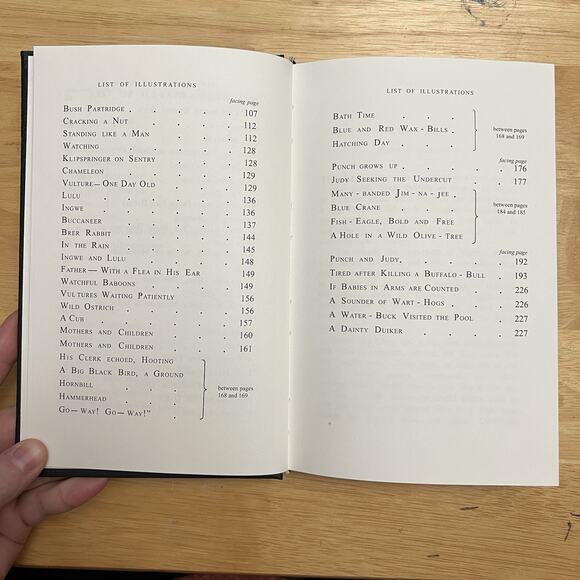 LIST OF ILLUSTRATIONS
facing page
BUSH PARTRIDGE . . . . . 107
CRACKING A NUT . . . . . 112
STANDING LIKE A MAN . . . . 112
WATCHING . . . . . . 128
KLIPSPRINGER ON SENTRY . . . . 128
CHAMELEON . . . . . . 129
VULTURE—ONE DAY OLD . . . . 129
LULU . . . . . . . 136
INGWE . . . . . . . 136
BUCCANEER . . . . . . 137
BRER RABBIT . . . . . . 144
IN THE RAIN . . . . . . 145
INGWE AND LULU . . . . . 148
FATHER—WITH A FLEA IN HIS EAR . . 149
WATCHFUL BABOONS . . . . . 149
VULTURES WAITING PATIENTLY . . . 156
WILD OSTRICH . . . . . . 156
A CUB . . . . . . . 157
MOTHERS AND CHILDREN . . . . 160
MOTHERS AND CHILDREN . . . . 161
HIS CLERK ECHOED, HOOTING
A BIG BLACK BIRD, A GROUND
HORNBILL . . .
HAMMERHEAD . . .
GO—WAY! GO—WAY!"
between pages
168 and 169
LIST OF ILLUSTRATIONS
BATH TIME . .
BLUE AND RED WAX-BILLS .
HATCHING DAY . .
between pages
168 and 169
facing page
PUNCH GROWS UP . . . . . 176
JUDY SEEKING THE UNDERCUT . . . 177
MANY-BANDED JIM-NA-JEE .
BLUE CRANE . .
FISH-EAGLE, BOLD AND FREE
A HOLE IN A WILD OLIVE-TREE
between pages
184 and 185
facing page
PUNCH AND JUDY, . . . . . 192
TIRED AFTER KILLING A BUFFALO-BULL . 193
IF BABIES IN ARMS ARE COUNTED . . 226
A SOUNDER OF WART-HOGS . . . 226
A WATER-BUCK VISITED THE POOL . . 227
A DAINTY DUIKER . . . . . 227